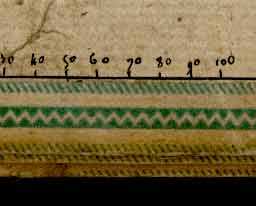 30 40 50 60 70 80 90 100